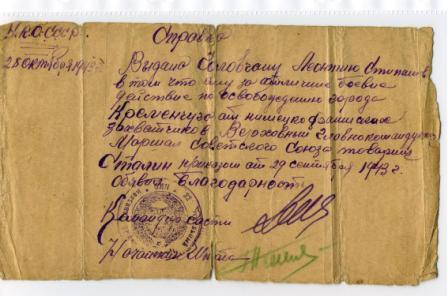 Н.К.О. СССР.
28 октября 1943 г.
Справка
Выдана Леонтию
в том что ему за отличные боевые
действие по освобождению города
Кременчуга от немецко фашистских
захватчиков Верховный Главнокомандующ
Маршал Советского Союза товарищ
Сталин приказом от 29 сентября 1943 г.
объявил Благодарность
Командир части
Начальник Штаба